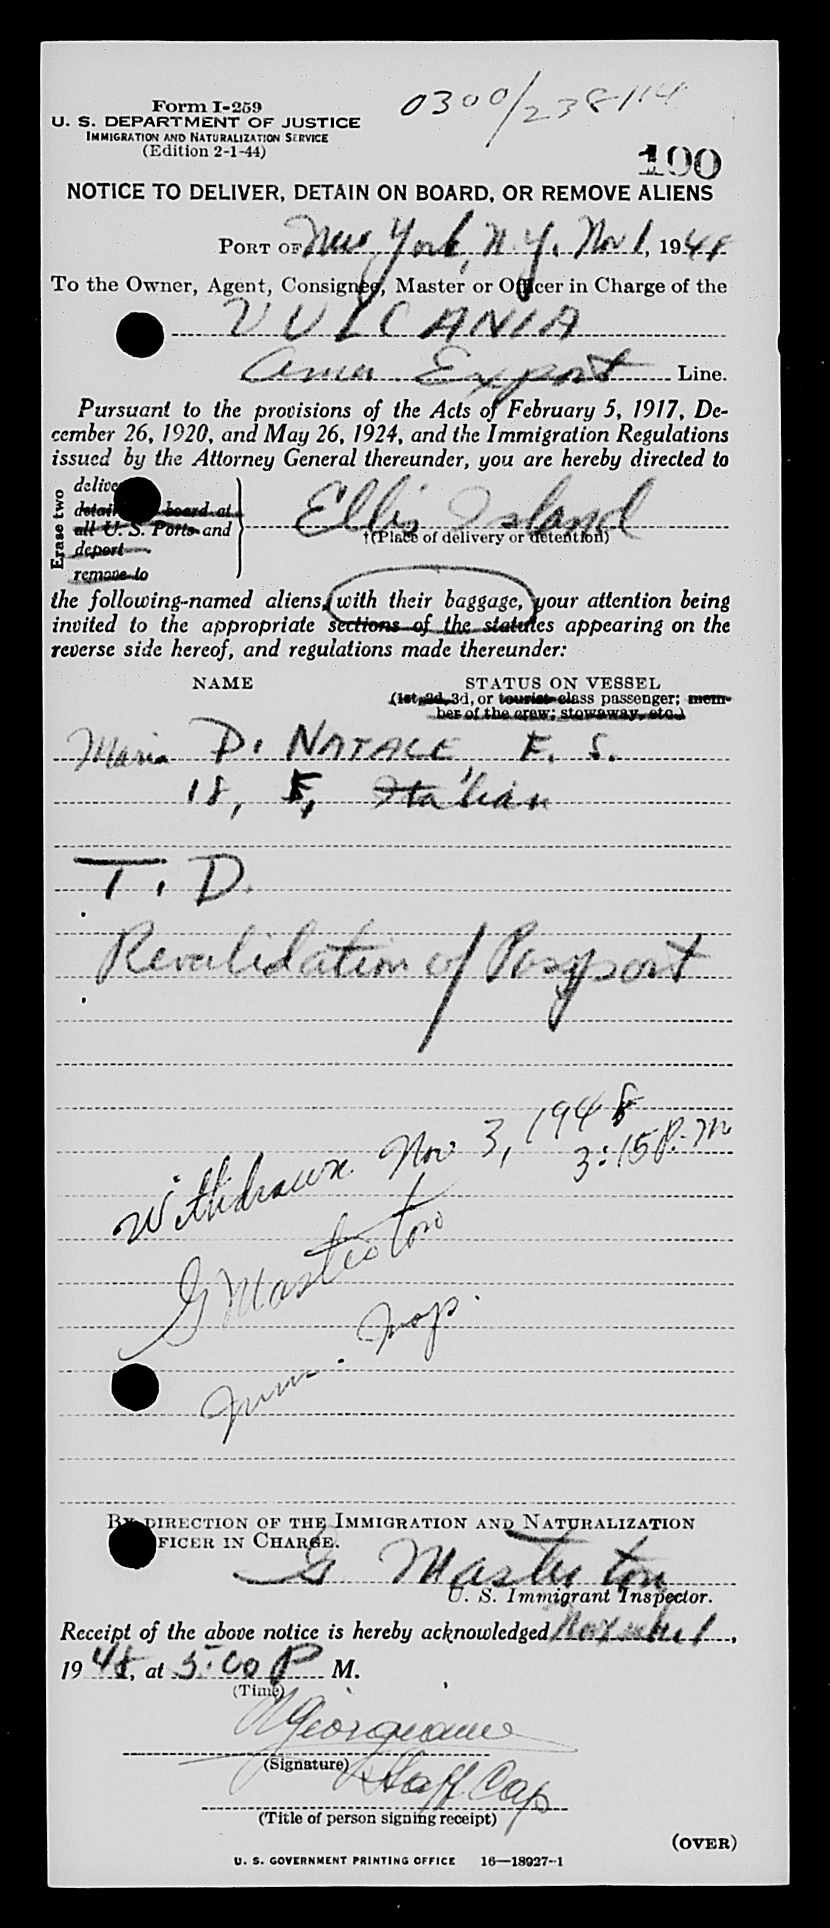 Form I-259
0300/238114
U. S. DEPARTMENT OF JUSTICE
IMMIGRATION AND NATURALIZATION SERVICE
(Edition 2-1-44)
100
NOTICE TO DELIVER, DETAIN ON BOARD, OR REMOVE ALIENS
PORT OF New York, N.Y. Nov 1, 1948
To the Owner, Agent, Consignee, Master or Officer in Charge of the
VULCANIA
Amer Export Line.
Pursuant to the provisions of the Acts of February 5, 1917, De-
cember 26, 1920, and May 26, 1924, and the Immigration Regulations
issued by the Attorney General thereunder, you are hereby directed to
Erase two
deliver
detain board at
all U. S. Ports and
deport
remove to
Ellis Island
†(Place of delivery or detention)
the following-named aliens, with their baggage, your attention being
invited to the appropriate sections of the statutes appearing on the
reverse side hereof, and regulations made thereunder:
NAME STATUS ON VESSEL
(1st, 2d, 3d, or tourist class passenger; mem-
ber of the crew; stowaway, etc.)
Maria Di NATALE F. S.
18, F, Italian
T. D.
Revalidation of Passport
Withdrawn Nov 3, 1948
3:15 P.M
G Masterton
Imm. Insp.
BY DIRECTION OF THE IMMIGRATION AND NATURALIZATION
OFFICER IN CHARGE.
G Masterton
U. S. Immigrant Inspector.
Receipt of the above notice is hereby acknowledged November 1,
1948, at 5:00 P M.
(Time)
(Signature)
Staff Cap
(Title of person signing receipt)
(OVER)
U. S. GOVERNMENT PRINTING OFFICE 16—18927-1